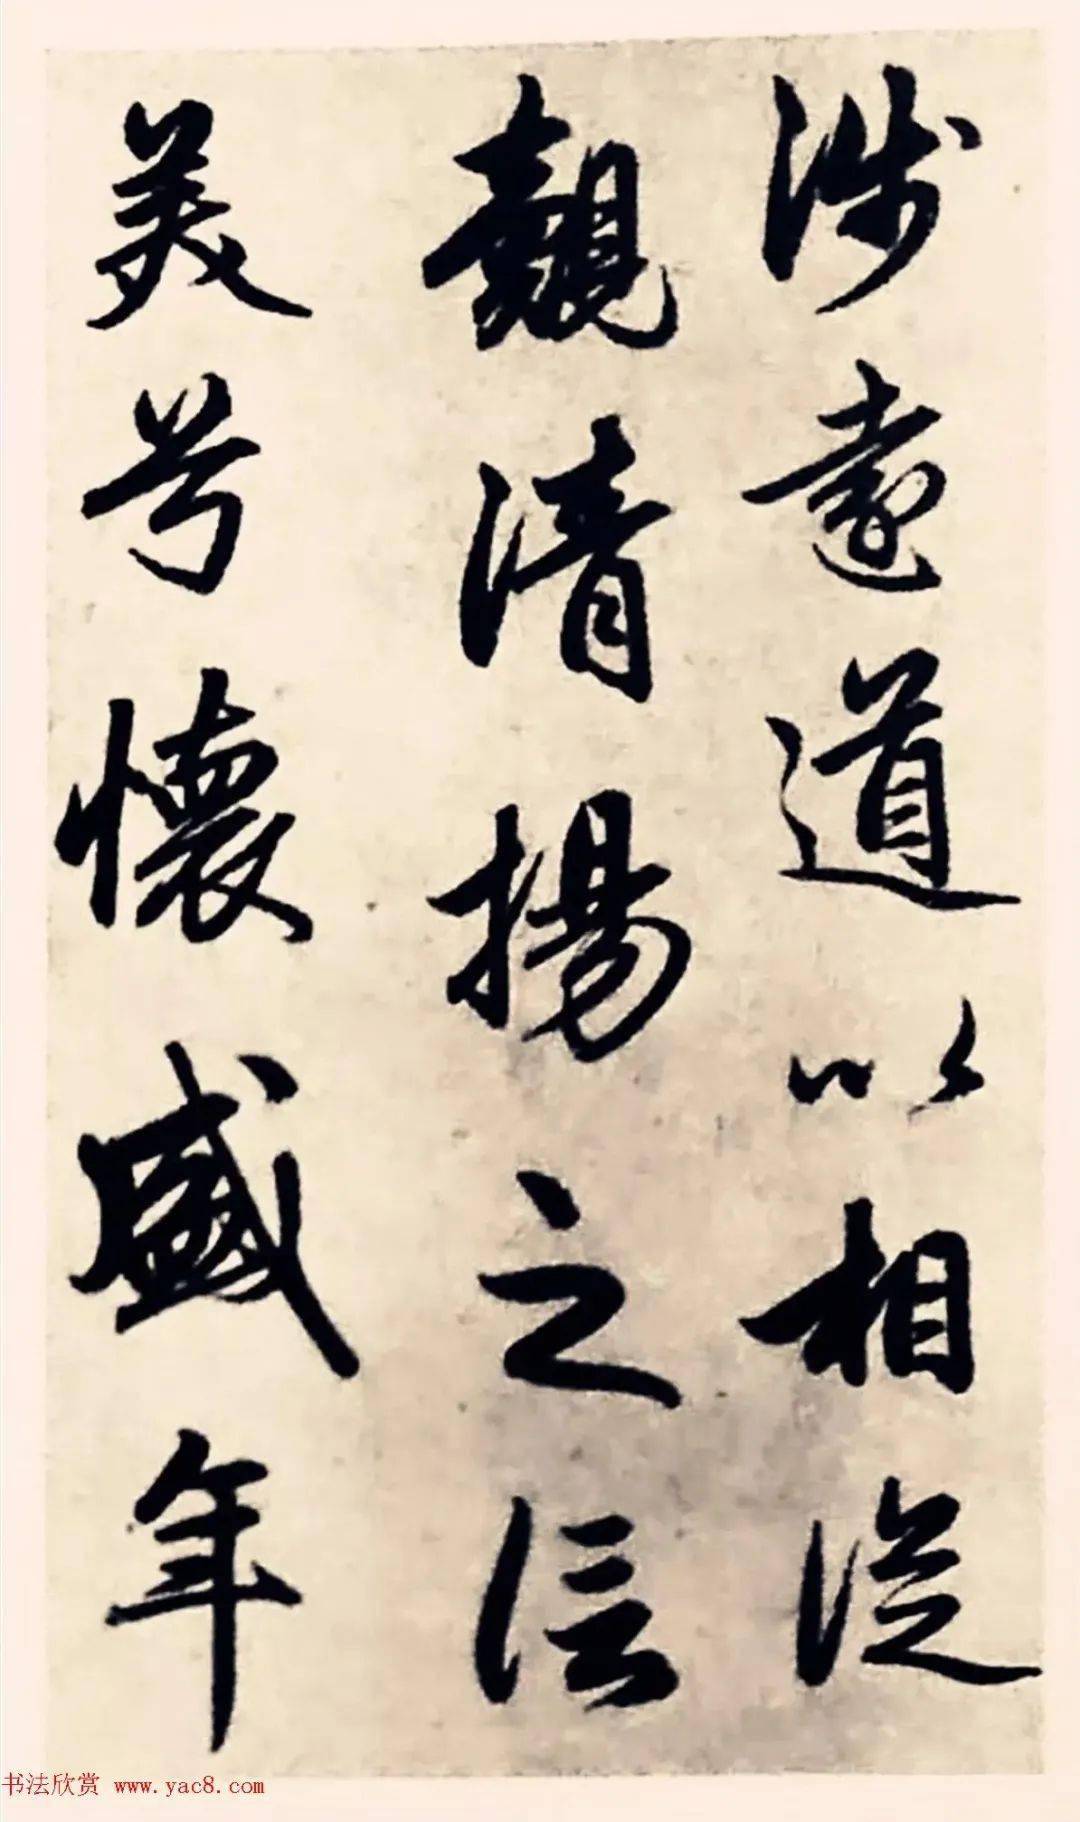 涉遠道以相從
覿清揚之信
美兮懷盛年
书法欣赏 www.yac8.com